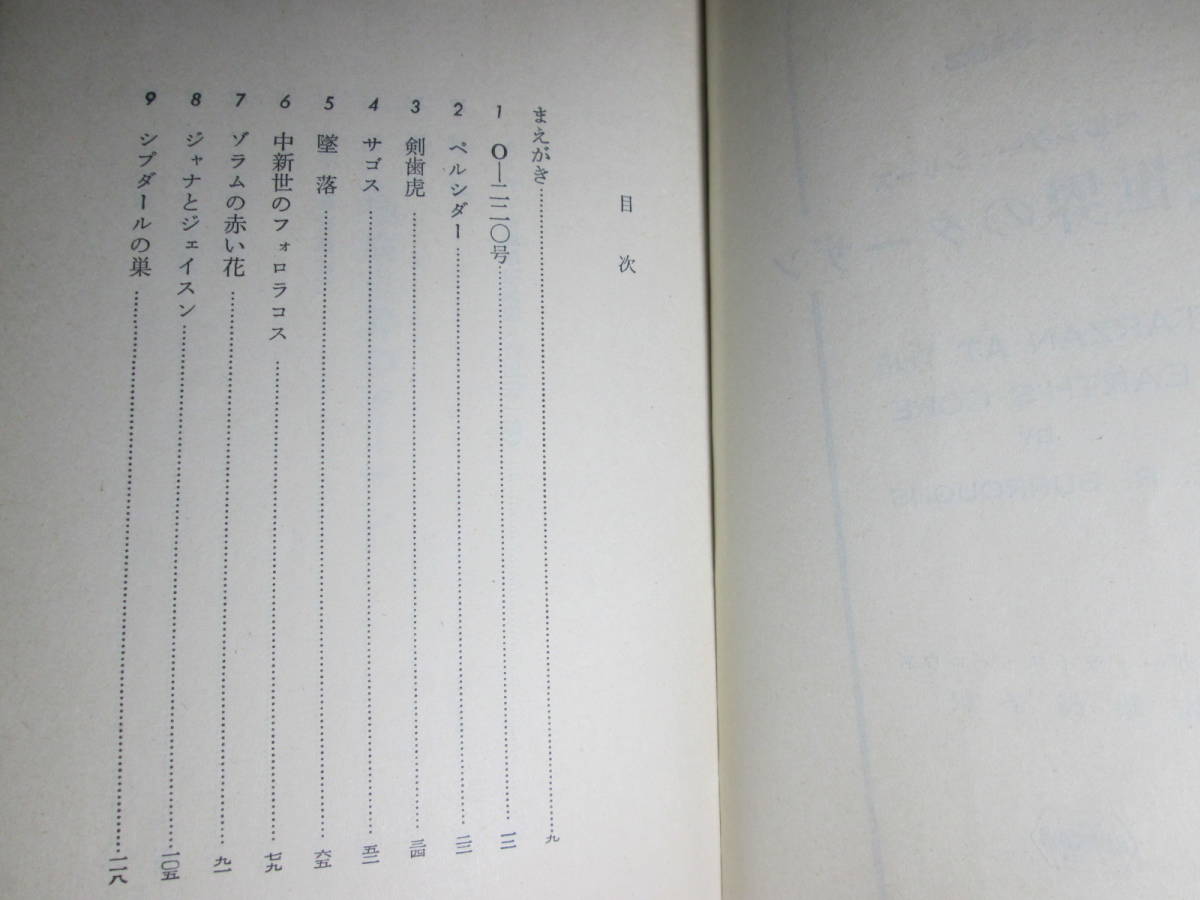 目次
まえがき……九
1 O—二二〇号……一三
2 ペルシダー……二三
3 剣歯虎……三四
4 サゴス……五二
5 墜落……六五
6 中新世のフォロラコス……七九
7 ゾラムの赤い花……九一
8 ジャナとジェイスン……一〇五
9 シプダールの巣……一一八
世界のターザン
TARZAN AT THE
EARTH'S CORE
BY
R. BURROUGHS